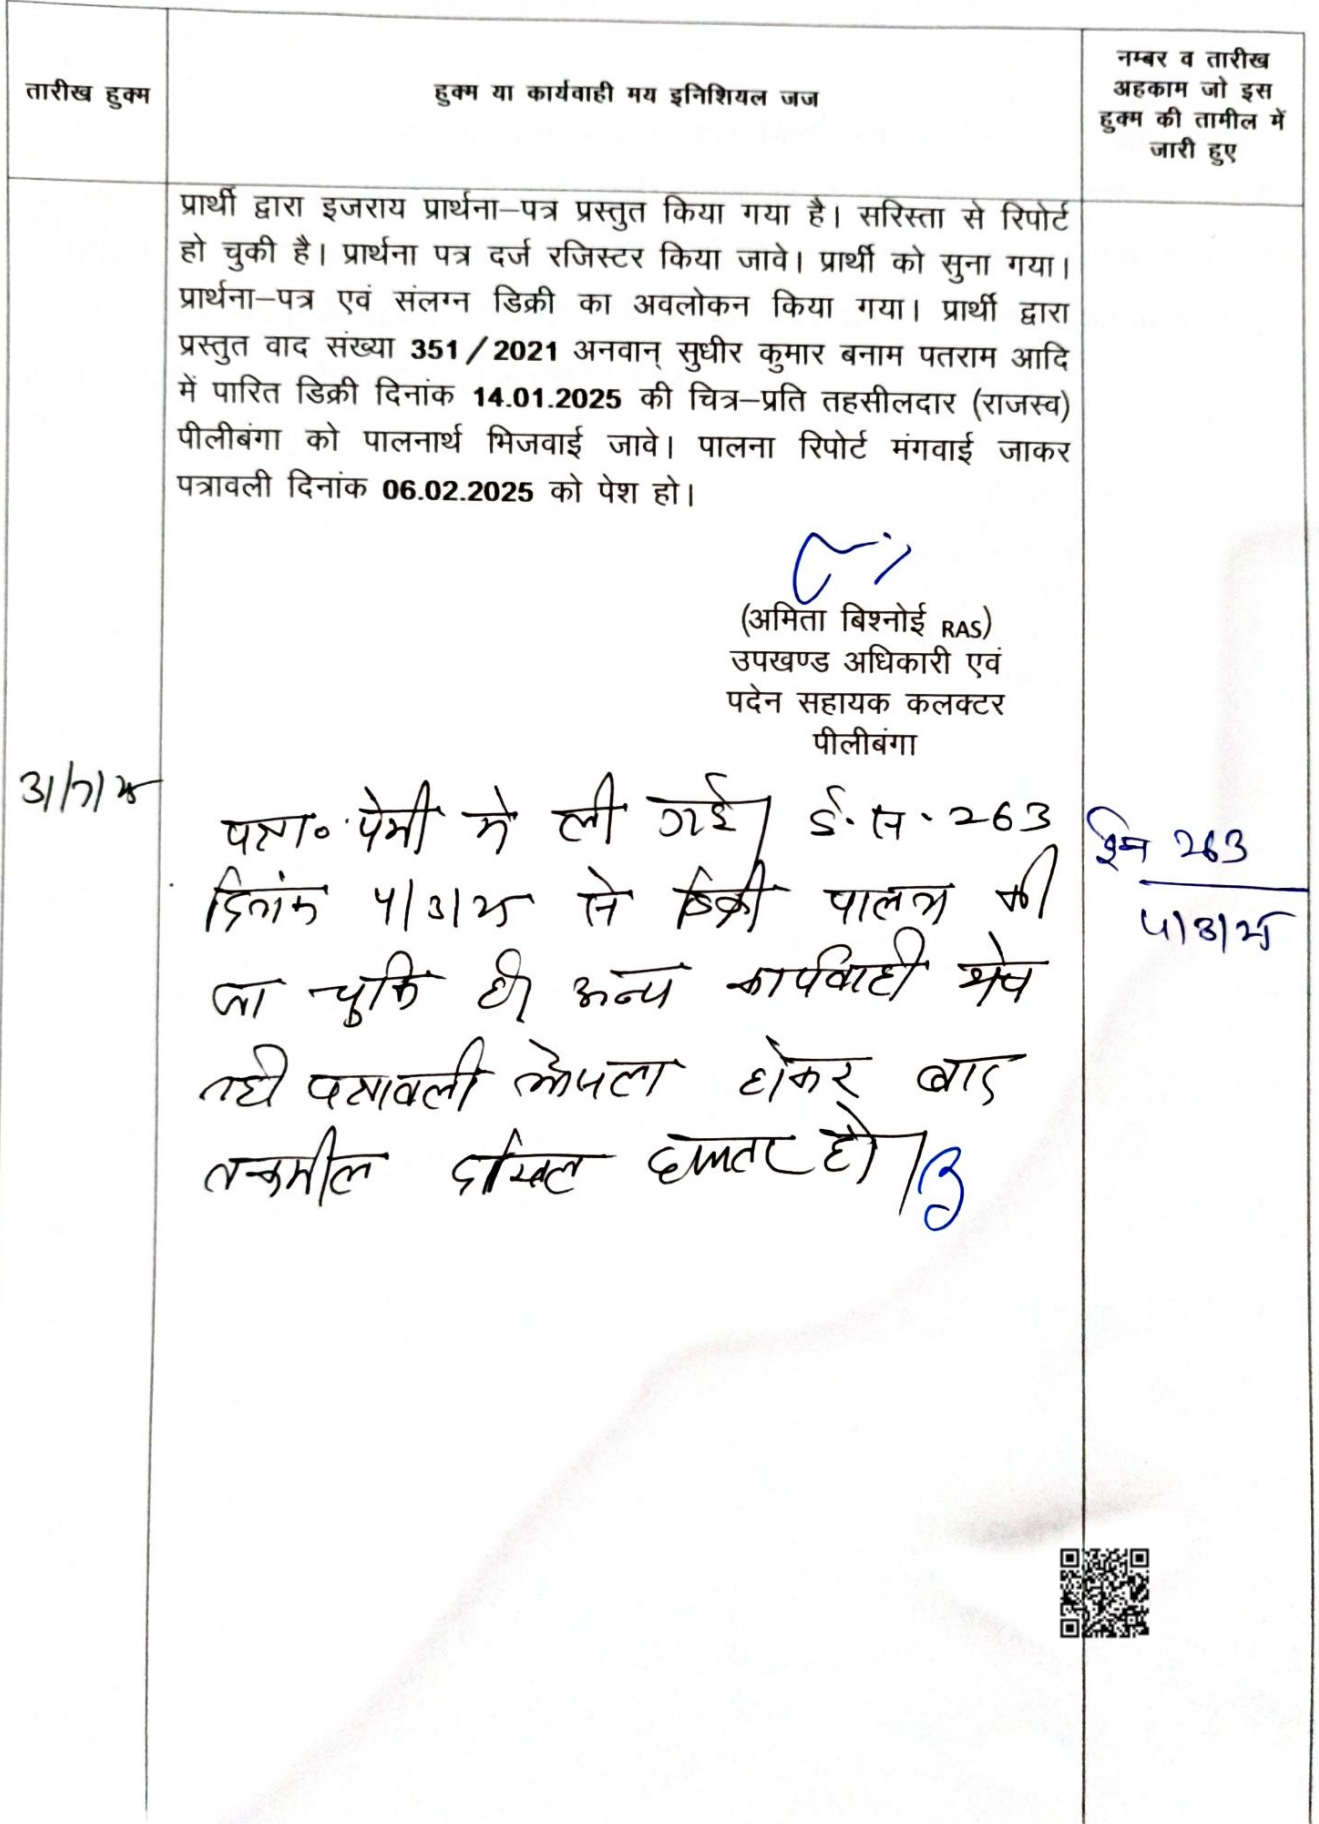 तारीख हुक्म
हुक्म या कार्यवाही मय इनिशियल जज
नम्बर व तारीख
अहकाम जो इस
हुक्म की तामील में
जारी हुए
प्रार्थी द्वारा इजराय प्रार्थना–पत्र प्रस्तुत किया गया है। सरिस्ता से रिपोर्ट
हो चुकी है। प्रार्थना पत्र दर्ज रजिस्टर किया जावे। प्रार्थी को सुना गया।
प्रार्थना–पत्र एवं संलग्न डिक्री का अवलोकन किया गया। प्रार्थी द्वारा
प्रस्तुत वाद संख्या 351/2021 अनवान् सुधीर कुमार बनाम पतराम आदि
में पारित डिक्री दिनांक 14.01.2025 की चित्र–प्रति तहसीलदार (राजस्व)
पीलीबंगा को पालनार्थ भिजवाई जावे। पालना रिपोर्ट मंगवाई जाकर
पत्रावली दिनांक 06.02.2025 को पेश हो।
(अमिता बिश्नोई RAS)
उपखण्ड अधिकारी एवं
पदेन सहायक कलक्टर
पीलीबंगा
पत्रा० पेशी मे ली गई। ई.स. 263
दिनांक 4/3/25 से डिक्री पालना की
जा चुकि है। अन्य कार्यवाही शेष
नही पत्रावली होकर बाद
तकमील दाखिल दफ्तर हो।
263
4/3/25